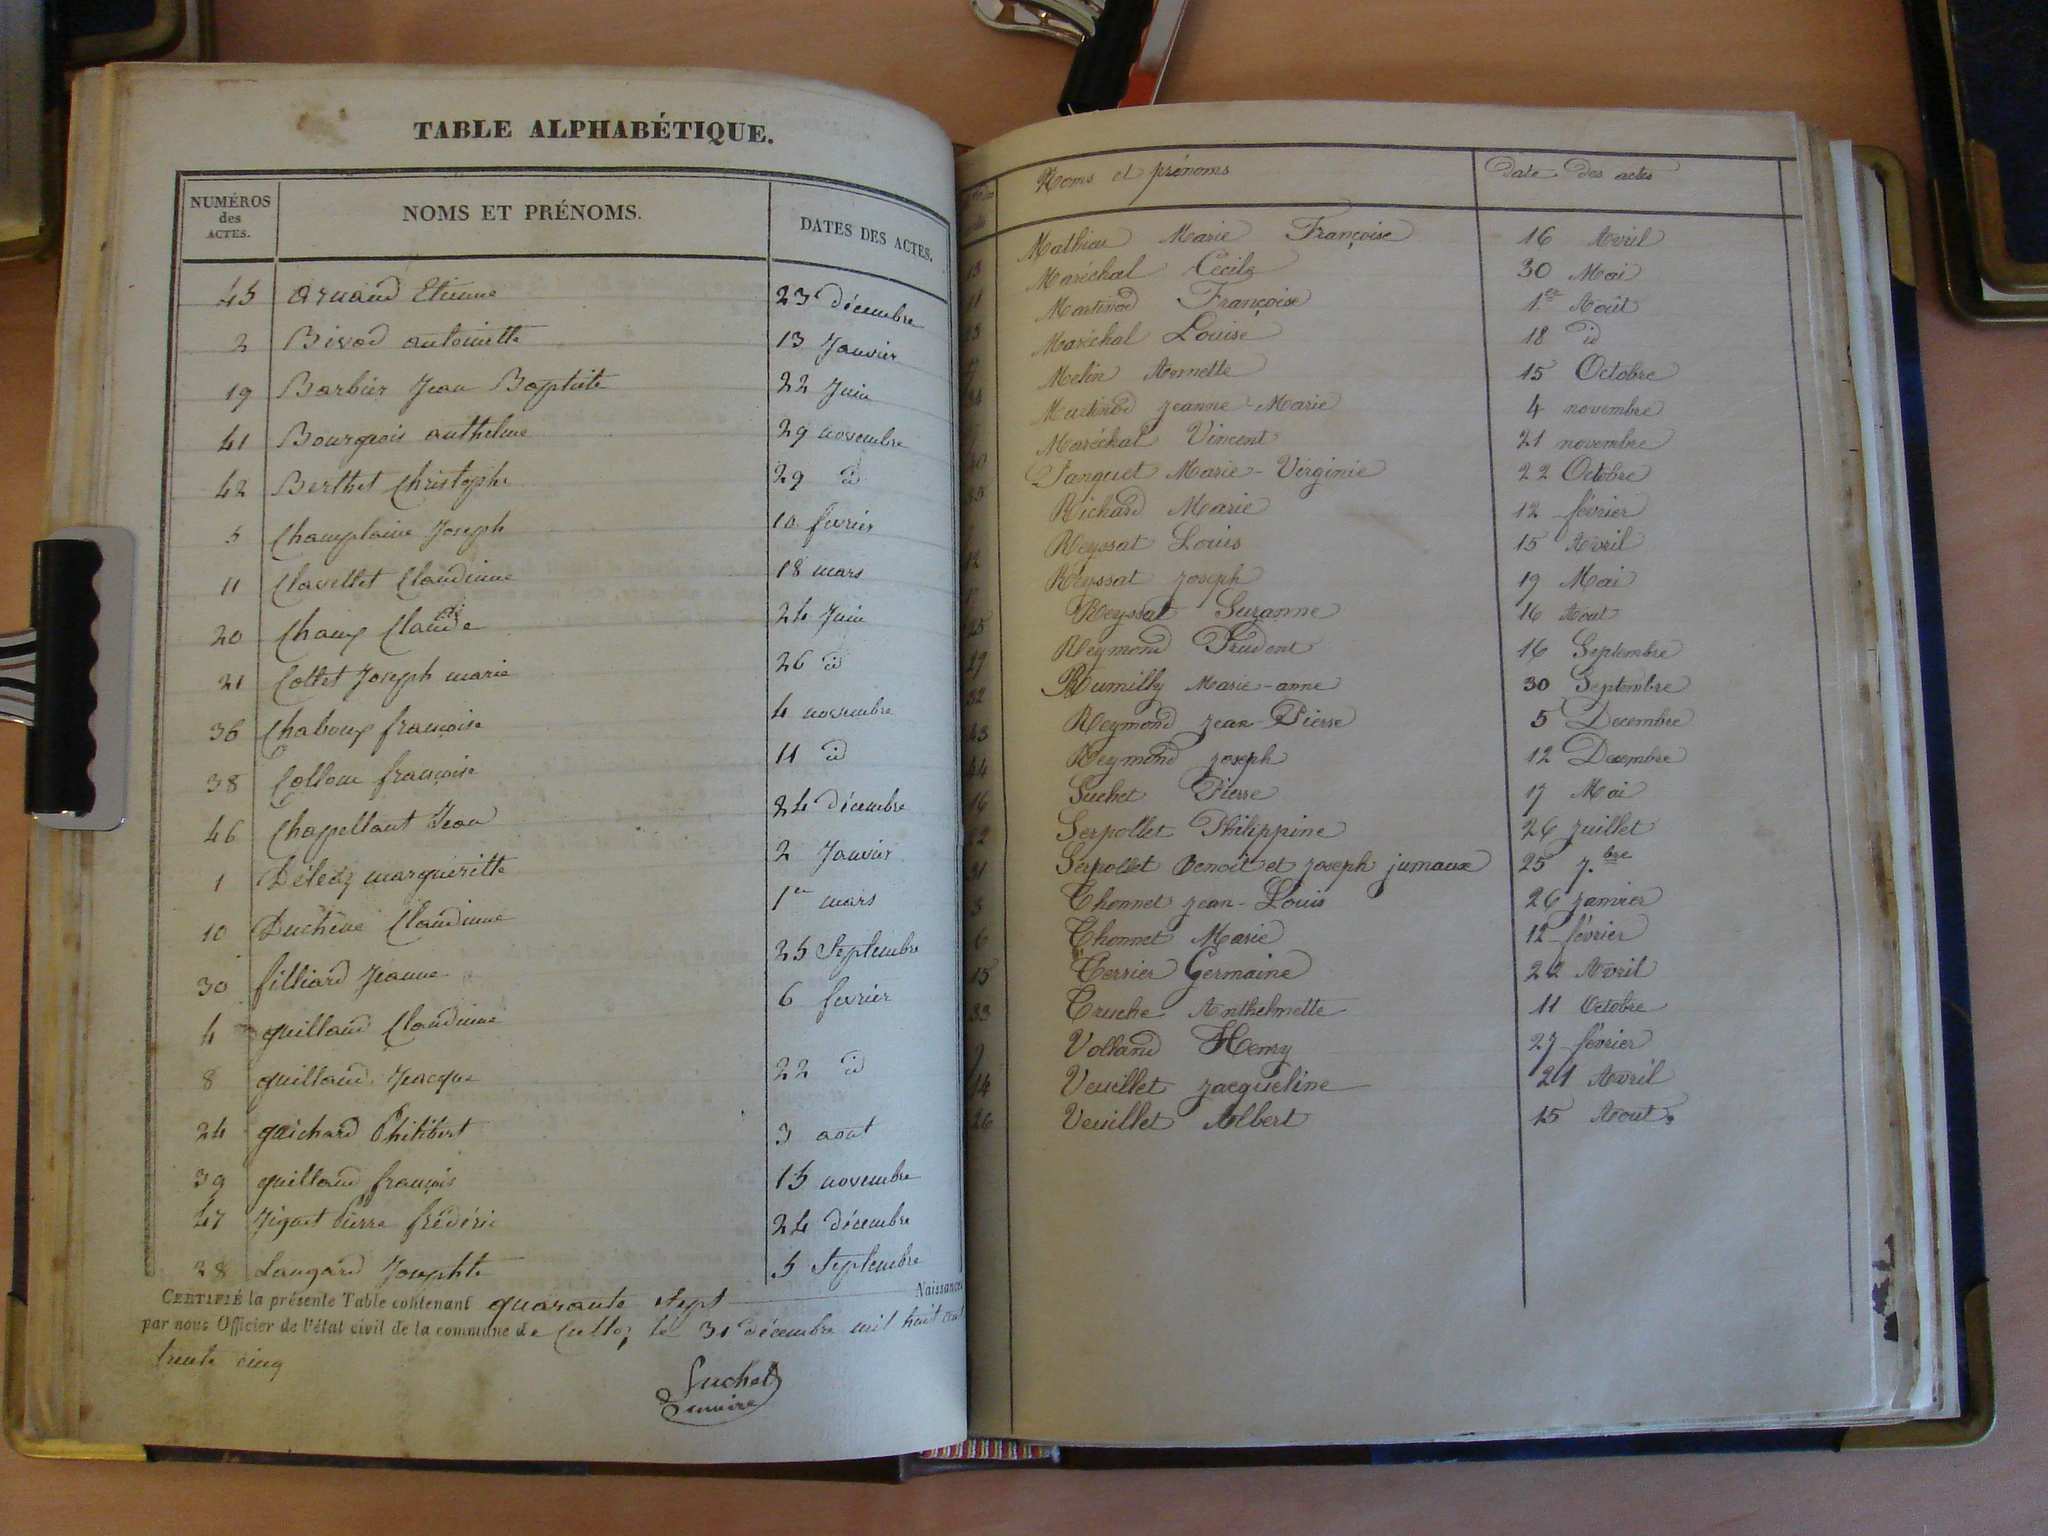 TABLE ALPHABÉTIQUE.
NUMÉROS des ACTES. NOMS ET PRÉNOMS. DATES DES ACTES.
45 Arnaud Etienne 23 décembre
2 Bivod antoinette 13 Janvier
19 Barbier Jean Baptiste 22 Juin
41 Bourgeois anthelme 29 novembre
42 Berthet Christophe 29 id
5 Champlaine Joseph 10 fevrier
11 Clavellet Claudinne 18 mars
20 Champ Claude 24 Juin
21 Collet Joseph marie 26 id
36 Chaboux françoise 4 novembre
38 françoise 11 id
46 Chapellant Jean 24 décembre
1 margueritte 2 Janvier
10 Duchêne Claudinne 1er mars
30 filliard Jeanne 25 Septembre
4 guilland Claudinne 6 fevrier
8 guilland Jacque 22 id
24 guichard Philibert 3 aout
39 guilland françois 15 novembre
47 Pierre frédéric 24 décembre
28 Langard Josephte 5 Septembre
CERTIFIÉ la présente Table contenant quarante sept Naissances
par nous Officier de l'état civil de la commune de Culloz le 31 décembre mil huit cent
trente cinq
Suchet
maire
Noms et prénoms Date des actes
13 Mathieu Marie Françoise 16 Avril
Maréchal Cécile 30 Mai
Martinod Françoise 1er Août
Maréchal Louise 18 id
Melin Annette 15 Octobre
Martinod jeanne-Marie 4 novembre
40 Maréchal Vincent 21 novembre
35 Panquet Marie-Virginie 22 Octobre
Richard Marie 12 février
12 Reyssat Louis 15 Avril
Reyssat joseph 19 Mai
25 Reyssat Suzanne 16 Aout
29 Reymond Prudent 16 Septembre
32 Rumilly Marie-anne 30 Septembre
43 Reymond jean-Pierre 5 Decembre
44 Reymond joseph 12 Decembre
16 Suchet Pierre 17 Mai
22 Serpollet Philippine 26 juillet
31 Serpollet Benoit et joseph jumaux 25 7.bre
3 Thonnet jean-Louis 26 janvier
6 Thonnet Marie 12 février
15 Terrier Germaine 22 Avril
33 Truche Anthelmette 11 Octobre
9 Volland Henry 27 février
14 Veuillet jacqueline 21 Avril
26 Veuillet Albert 15 Aout